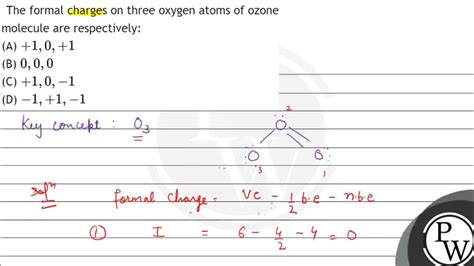 The formal charges on three oxygen atoms of ozone
molecule are respectively:
(A) +1, 0, +1
(B) 0, 0, 0
(C) +1, 0, −1
(D) −1, +1, −1
Key concept : O₃
2
O
O O
3 1
Solⁿ formal charge = Ve − 1/2 b.e − n.b.e
① I = 6 − 4/2 − 4 = 0
P
W